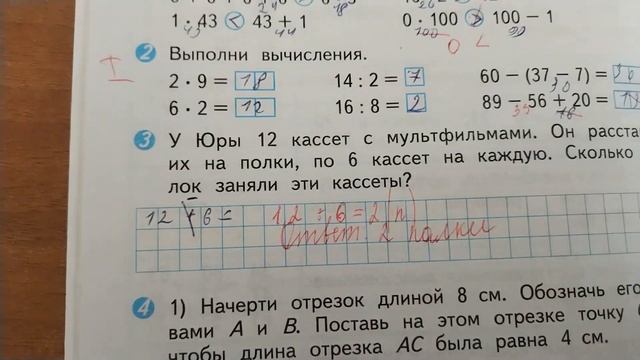 1 · 43 < 43 + 1 0 · 100 > 100 − 1
43 44 100 0 < 99
I 2 Выполни вычисления.
2 · 9 = 18 14 : 2 = 7 60 − (37 − 7) = 30
6 · 2 = 12 16 : 8 = 2 89 − 56 + 20 =
3 У Юры 12 кассет с мультфильмами. Он расста
их на полки, по 6 кассет на каждую. Сколько
лок заняли эти кассеты?
12 6 = 12 : 6 = 2 (п)
Ответ: 2 полки
4 1) Начерти отрезок длиной 8 см. Обозначь его
вами А и В. Поставь на этом отрезке точку
чтобы длина отрезка АС была равна 4 см.